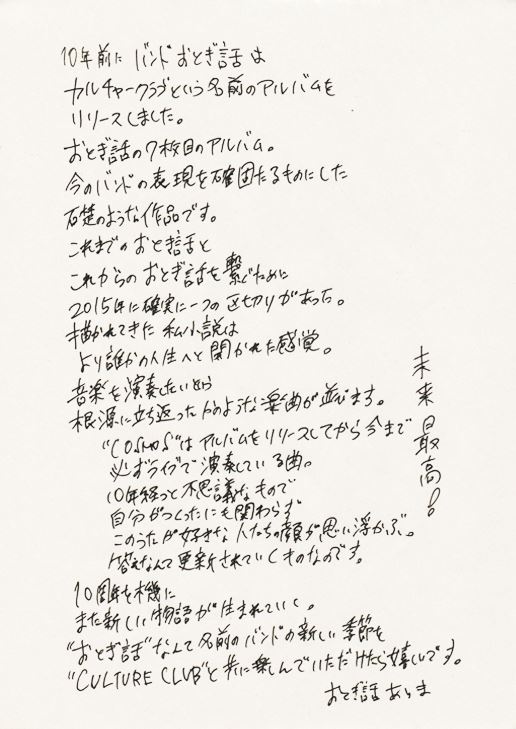 10年前に バンド おとぎ話 は
カルチャークラブという名前のアルバムを
リリースしました。
おとぎ話の7枚目のアルバム。
今のバンドの表現を確固たるものにした
石礎のような作品です。
これまでのおとぎ話と
これからのおとぎ話を繋ぐために
2015年に確実に一つの区切りがあった。
描かれてきた私小説は
より誰かの人生へと開かれた感覚。
音楽を演奏したいから
根源に立ち返ったかのような楽曲が並びます。
"COSMOS"はアルバムをリリースしてから今まで
必ずライブで演奏している曲。
10年経つと不思議なもので
自分がつくったにも関わらず
このうたが好きな人たちの顔が思い浮かぶ。
答えなんて更新されていくものなのです。
10周年を機に
また新しい物語が生まれていく。
"おとぎ話"なんて名前のバンドの新しい季節を
"CULTURE CLUB"と共に楽しんでいただけたら嬉しいです。
おとぎ話 ありま
未来最高!